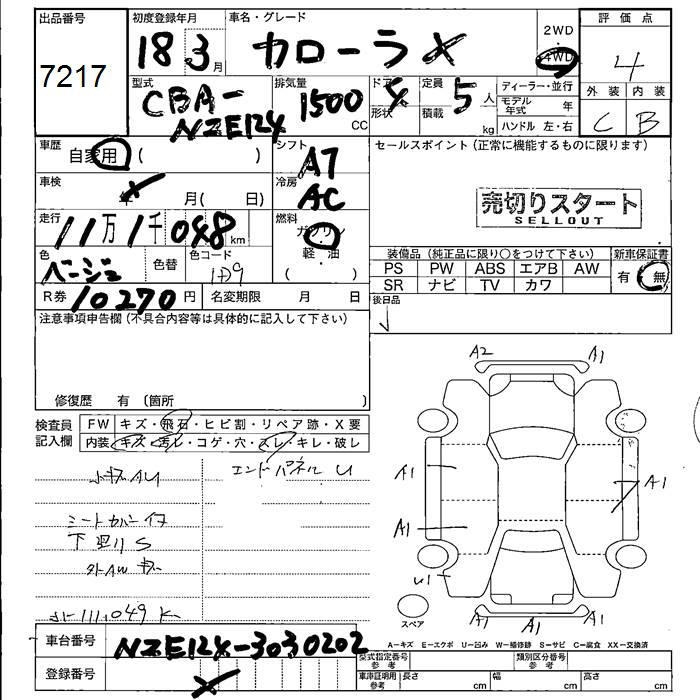 出品番号 初度登録年月 車名・グレード 2WD 評価点
7217 18 3月 カローラ X 4WD 4
型式 排気量 ドア 定員 ディーラー・並行 外装 内装
CBA- 1500 4 5人 モデル年式 年 C B
NZE124 CC 形状 積載 kg ハンドル 左・右
車歴 自家用 ( ) シフト AT セールスポイント (正常に機能するものに限ります)
車検 月( 日) 冷房 AC
売切りスタート
SELLOUT
走行 11万1千048km 燃料 ガソリン
軽・油
色 ベージュ 色替 色コード ( )
装備品 (純正品に限り○をつけて下さい) 新車保証書
PS PW ABS エアB AW 有 無
SR ナビ TV カワ
R券 10270円 名変期限 月 日 後日品
注意事項申告欄 (不具合内容等は具体的に記入して下さい)
修復歴 有 〔箇所
A2 A1
検査員 FW キズ・飛石・ヒビ割・リペア跡・X要
記入欄 内装 キズ・汚レ・コゲ・穴・スレ・キレ・破レ
エンドパネル U
A1 A1
シートカバーイタ
下廻りS
A1
U1
スペア
A1 A1 A1
A−キズ E−エクボ U−凹み W−補修跡 S−サビ C−腐食 XX−交換済
車台番号 NZE124-3030202
型式指定番号 参考 類別区分番号 参考
登録番号
車庫証明用 参考 長さ cm 幅 cm 高さ cm